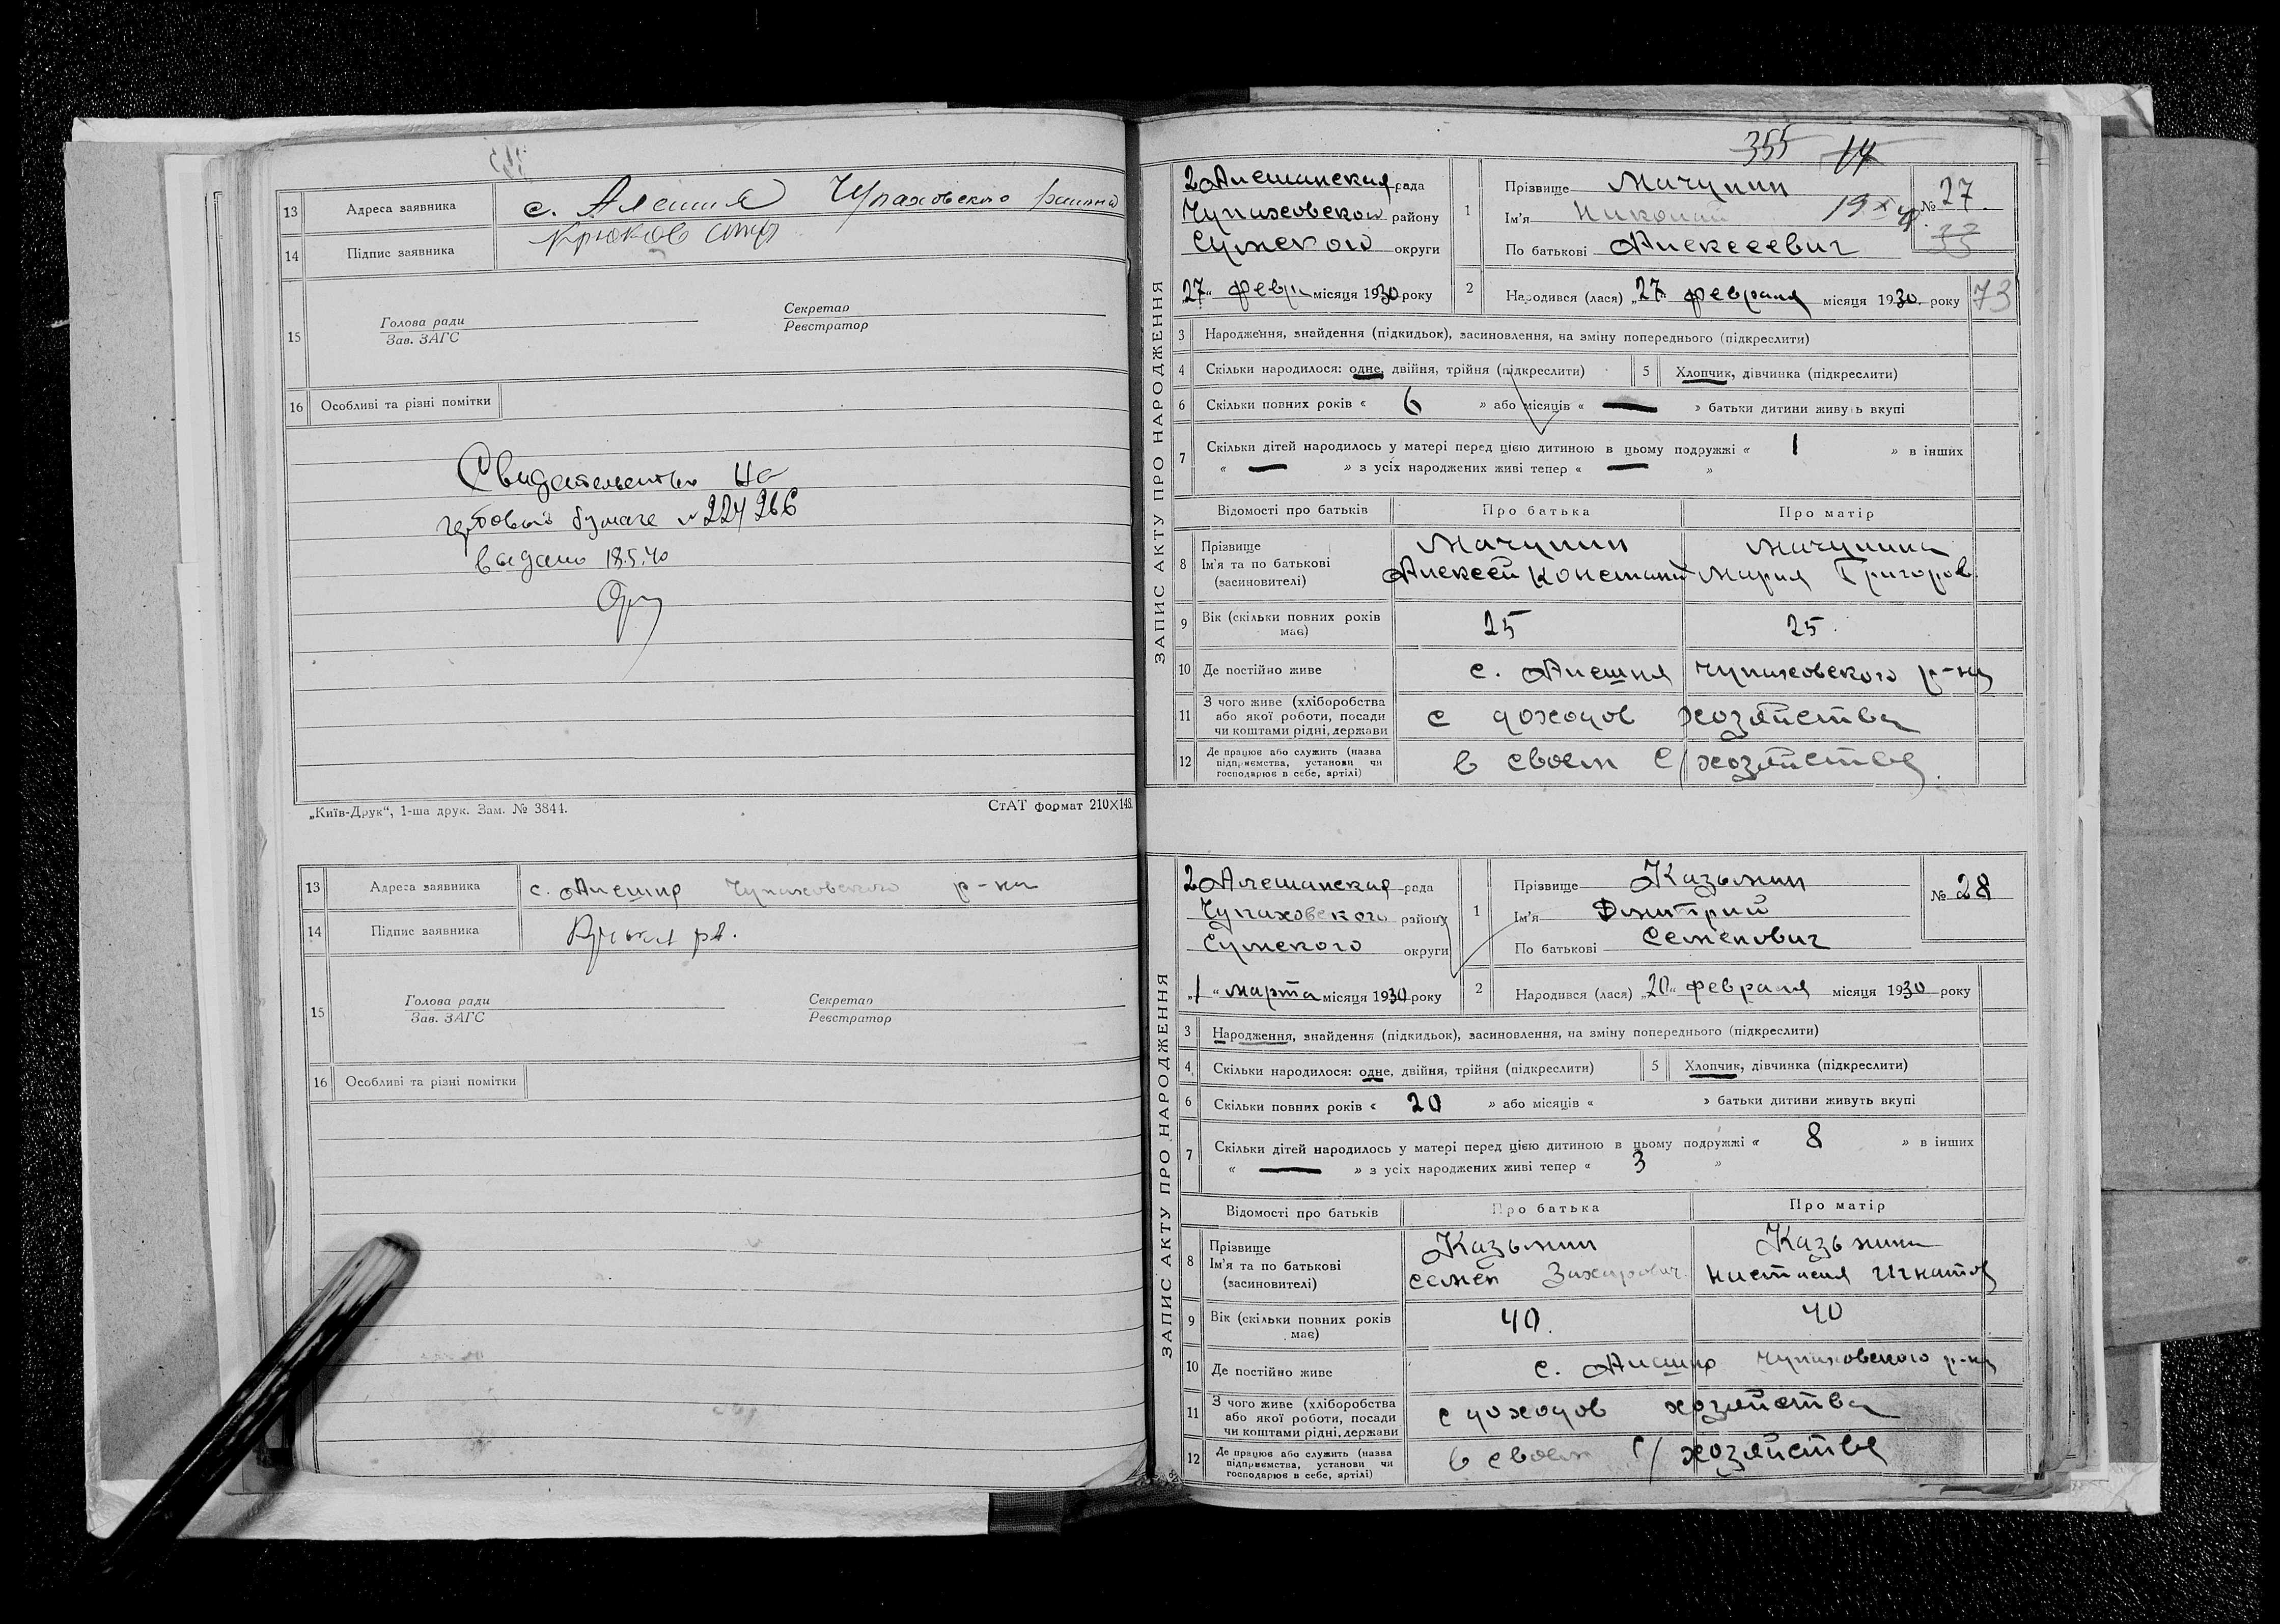 13 Адреса заявника с. Алешня Чупаховского района
14 Підпис заявника Крюков
15 Голова ради Секретар
Зав. ЗАГС Реєстратор
16 Особливі та різні помітки
Свидетельство на
гербовой бумаге № 224266
выдано 18.5.40
„Київ-Друк“, 1-ша друк. Зам. № 3844. СтАТ формат 210×148.
13 Адреса заявника с. Алешня Чупаховского р-на
14 Підпис заявника
15 Голова ради Секретар
Зав. ЗАГС Реєстратор
16 Особливі та різні помітки
355 14
ЗАПИС АКТУ ПРО НАРОДЖЕННЯ
2 Алешанская рада
Чупаховского району
Сумского округи
„27“ февр. місяця 1930 року
1 Прізвище Мачулин
Ім'я Николай
По батькові Алексеевич
№ 27
2 Народився (лася) „27“ февраля місяця 1930 року 73
3 Народження, знайдення (підкидьок), засиновлення, на зміну попереднього (підкреслити)
4 Скільки народилося: одне, двійня, трійня (підкреслити) 5 Хлопчик, дівчинка (підкреслити)
6 Скільки повних років « 6 » або місяців « — » батьки дитини живуть вкупі
7 Скільки дітей народилось у матері перед цією дитиною в цьому подружжі « 1 » в інших
« — » з усіх народжених живі тепер « — »
Відомості про батьків Про батька Про матір
8 Прізвище Мачулин Мачулина
Ім'я та по батькові Алексей Констант Мария Григоров
(засиновителі)
9 Вік (скільки повних років має) 25 25.
10 Де постійно живе с. Алешня Чупаховского р-на
11 З чого живе (хліборобства
або якої роботи, посади с доходов хозяйства
чи коштами рідні, держави
12 Де працює або служить (назва
підприємства, установи чи в своем с/хозяйстве
господарює в себе, артілі)
ЗАПИС АКТУ ПРО НАРОДЖЕННЯ
2 Алешанская рада
Чупаховского району
Сумского округи
„1“ марта місяця 1930 року
1 Прізвище Казьмин
Ім'я Дмитрий
По батькові Семенович
№ 28
2 Народився (лася) „20“ февраля місяця 1930 року
3 Народження, знайдення (підкидьок), засиновлення, на зміну попереднього (підкреслити)
4 Скільки народилося: одне, двійня, трійня (підкреслити) 5 Хлопчик, дівчинка (підкреслити)
6 Скільки повних років « 20 » або місяців « » батьки дитини живуть вкупі
7 Скільки дітей народилось у матері перед цією дитиною в цьому подружжі « 8 » в інших
« — » з усіх народжених живі тепер « 3 »
Відомості про батьків Про батька Про матір
8 Прізвище Казьмин Казьмина
Ім'я та по батькові Семен Захарович. Настасия Игнатов
(засиновителі)
9 Вік (скільки повних років має) 40. 40
10 Де постійно живе с. Алешня Чупаховского р-на
11 З чого живе (хліборобства
або якої роботи, посади с доходов хозяйства
чи коштами рідні, держави
12 Де працює або служить (назва
підприємства, установи чи в своем с/хозяйстве
господарює в себе, артілі)